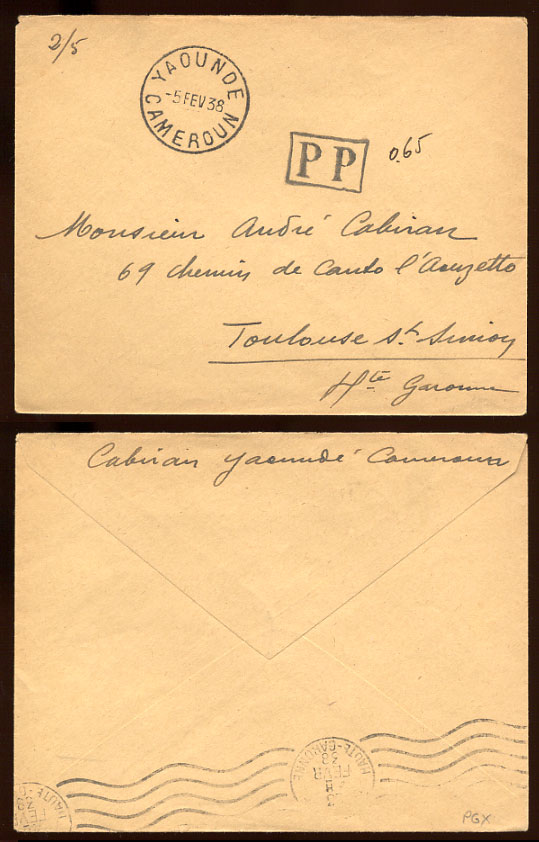 2/5
YAOUNDE
-5 FEV 38
CAMEROUN
PP
0.65
Monsieur André Cabiran
69 chemin de Canto l'Aouzetto
Toulouse St. Simon
Hte Garonne
Cabiran Yaoundé Cameroun
FEVR
38
HAUTE-GARONNE
FEVR
38
HAUTE-
PGX